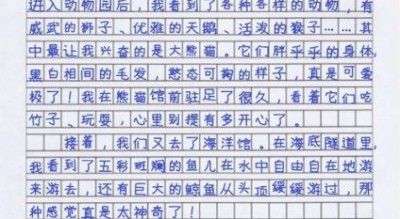 进入动物园后，我看到了各种各样的动物，有
威武的狮子、优雅的天鹅、活泼的猴子……其
中最让我兴奋的是大熊猫。它们胖乎乎的身体，
黑白相间的毛发，憨态可掬的样子，真是可爱
极了！我在熊猫馆前驻足了很久，看着它们吃
竹子、玩耍，心里别提有多开心了。
接着，我们又去了海洋馆。在海底隧道里，
我看到了五彩斑斓的鱼儿在水中自由自在地游
来游去，还有巨大的鲸鱼从头顶缓缓游过，那
种感觉真是太神奇了！